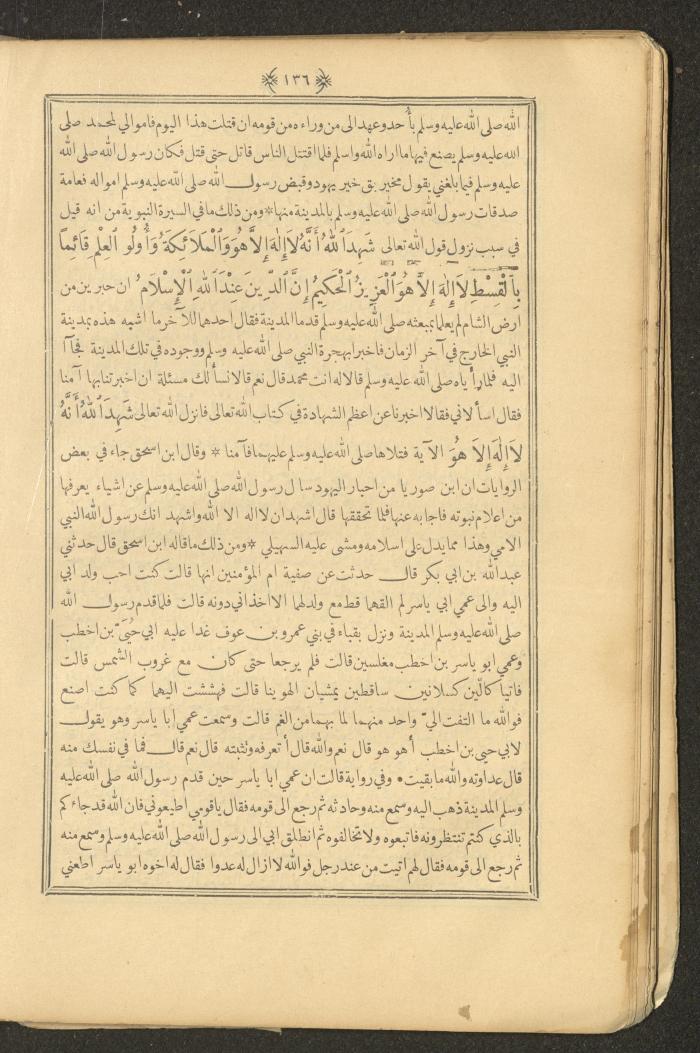 ١٣٦
الله صلى الله عليه وسلم بأحد وعهد الى من وراءه من قومه ان قتلت هذا اليوم فاموالي لمحمد صلى
الله عليه وسلم يصنع فيها ما اراه الله واسلم فلما اقتتل الناس قاتل حتى قتل فكان رسول الله صلى الله
عليه وسلم فيما بلغني يقول مخيريق خير يهود وقبض رسول الله صلى الله عليه وسلم امواله فعامة
صدقات رسول الله صلى الله عليه وسلم بالمدينة منها * ومن ذلك ما في السيرة النبوية من انه قيل
في سبب نزول قول الله تعالى شَهِدَ ٱللهُ أَنَّهُ لاَ إِلٰهَ إِلاَّ هُوَ وَٱلْمَلاَئِكَةُ وَأُولُو ٱلْعِلْمِ قَائِماً
بِٱلْقِسْطِ لاَ إِلٰهَ إِلاَّ هُوَ ٱلْعَزِيزُ ٱلْحَكِيمُ إِنَّ ٱلدِّينَ عِنْدَ ٱللهِ ٱلْإِسْلاَمُ ان حبرين من
ارض الشام لم يعلما بمبعثه صلى الله عليه وسلم قدما المدينة فقال احدهما للآخر ما اشبه هذه بمدينة
النبي الخارج في آخر الزمان فاخبرا بهجرة النبي صلى الله عليه وسلم ووجوده في تلك المدينة فجاآ
اليه فلما رأياه صلى الله عليه وسلم قالا له انت محمد قال نعم قالا نسألك مسئلة ان اخبرتنا بها آمنا
فقال اسألاني فقالا اخبرنا عن اعظم الشهادة في كتاب الله تعالى فانزل الله تعالى شَهِدَ ٱللهُ أَنَّهُ
لاَ إِلٰهَ إِلاَّ هُوَ الآية فتلاها صلى الله عليه وسلم عليهما فآمنا * وقال ابن اسحق جاء في بعض
الروايات ان ابن صوريا من احبار اليهود سال رسول الله صلى الله عليه وسلم عن اشياء يعرفها
من اعلام نبوته فاجابه عنها فلما تحققها قال اشهد ان لا اله الا الله واشهد انك رسول الله النبي
الامي وهذا مما يدل على اسلامه ومشى عليه السهيلي * ومن ذلك ما قاله ابن اسحق قال حدثني
عبد الله بن ابي بكر قال حدثت عن صفية ام المؤمنين انها قالت كنت احب ولد ابي
اليه والى عمي ابي ياسر لم القهما قط مع ولد لهما الا اخذاني دونه قالت فلما قدم رسول الله
صلى الله عليه وسلم المدينة ونزل بقباء في بني عمرو بن عوف غدا عليه ابي حُيَيّ بن اخطب
وعمي ابو ياسر بن اخطب مغلسين قالت فلم يرجعا حتى كان مع غروب الشمس قالت
فاتيا كالّين كسلانين ساقطين يمشيان الهوينا قالت فهششت اليهما كما كنت اصنع
فوالله ما التفت اليّ واحد منهما لما بهما من الغم قالت وسمعت عمي ابا ياسر وهو يقول
لابي حيي بن اخطب أهو هو قال نعم والله قال أتعرفه وتثبته قال نعم قال فما في نفسك منه
قال عداوته والله ما بقيت * وفي رواية قالت ان عمي ابا ياسر حين قدم رسول الله صلى الله عليه
وسلم المدينة ذهب اليه وسمع منه وحادثه ثم رجع الى قومه فقال يا قومي اطيعوني فان الله قد جاءكم
بالذي كنتم تنتظرونه فاتبعوه ولا تخالفوه ثم انطلق ابي الى رسول الله صلى الله عليه وسلم وسمع منه
ثم رجع الى قومه فقال لهم اتيت من عند رجل فوالله لا ازال له عدوا فقال له اخوه ابو ياسر اطعني